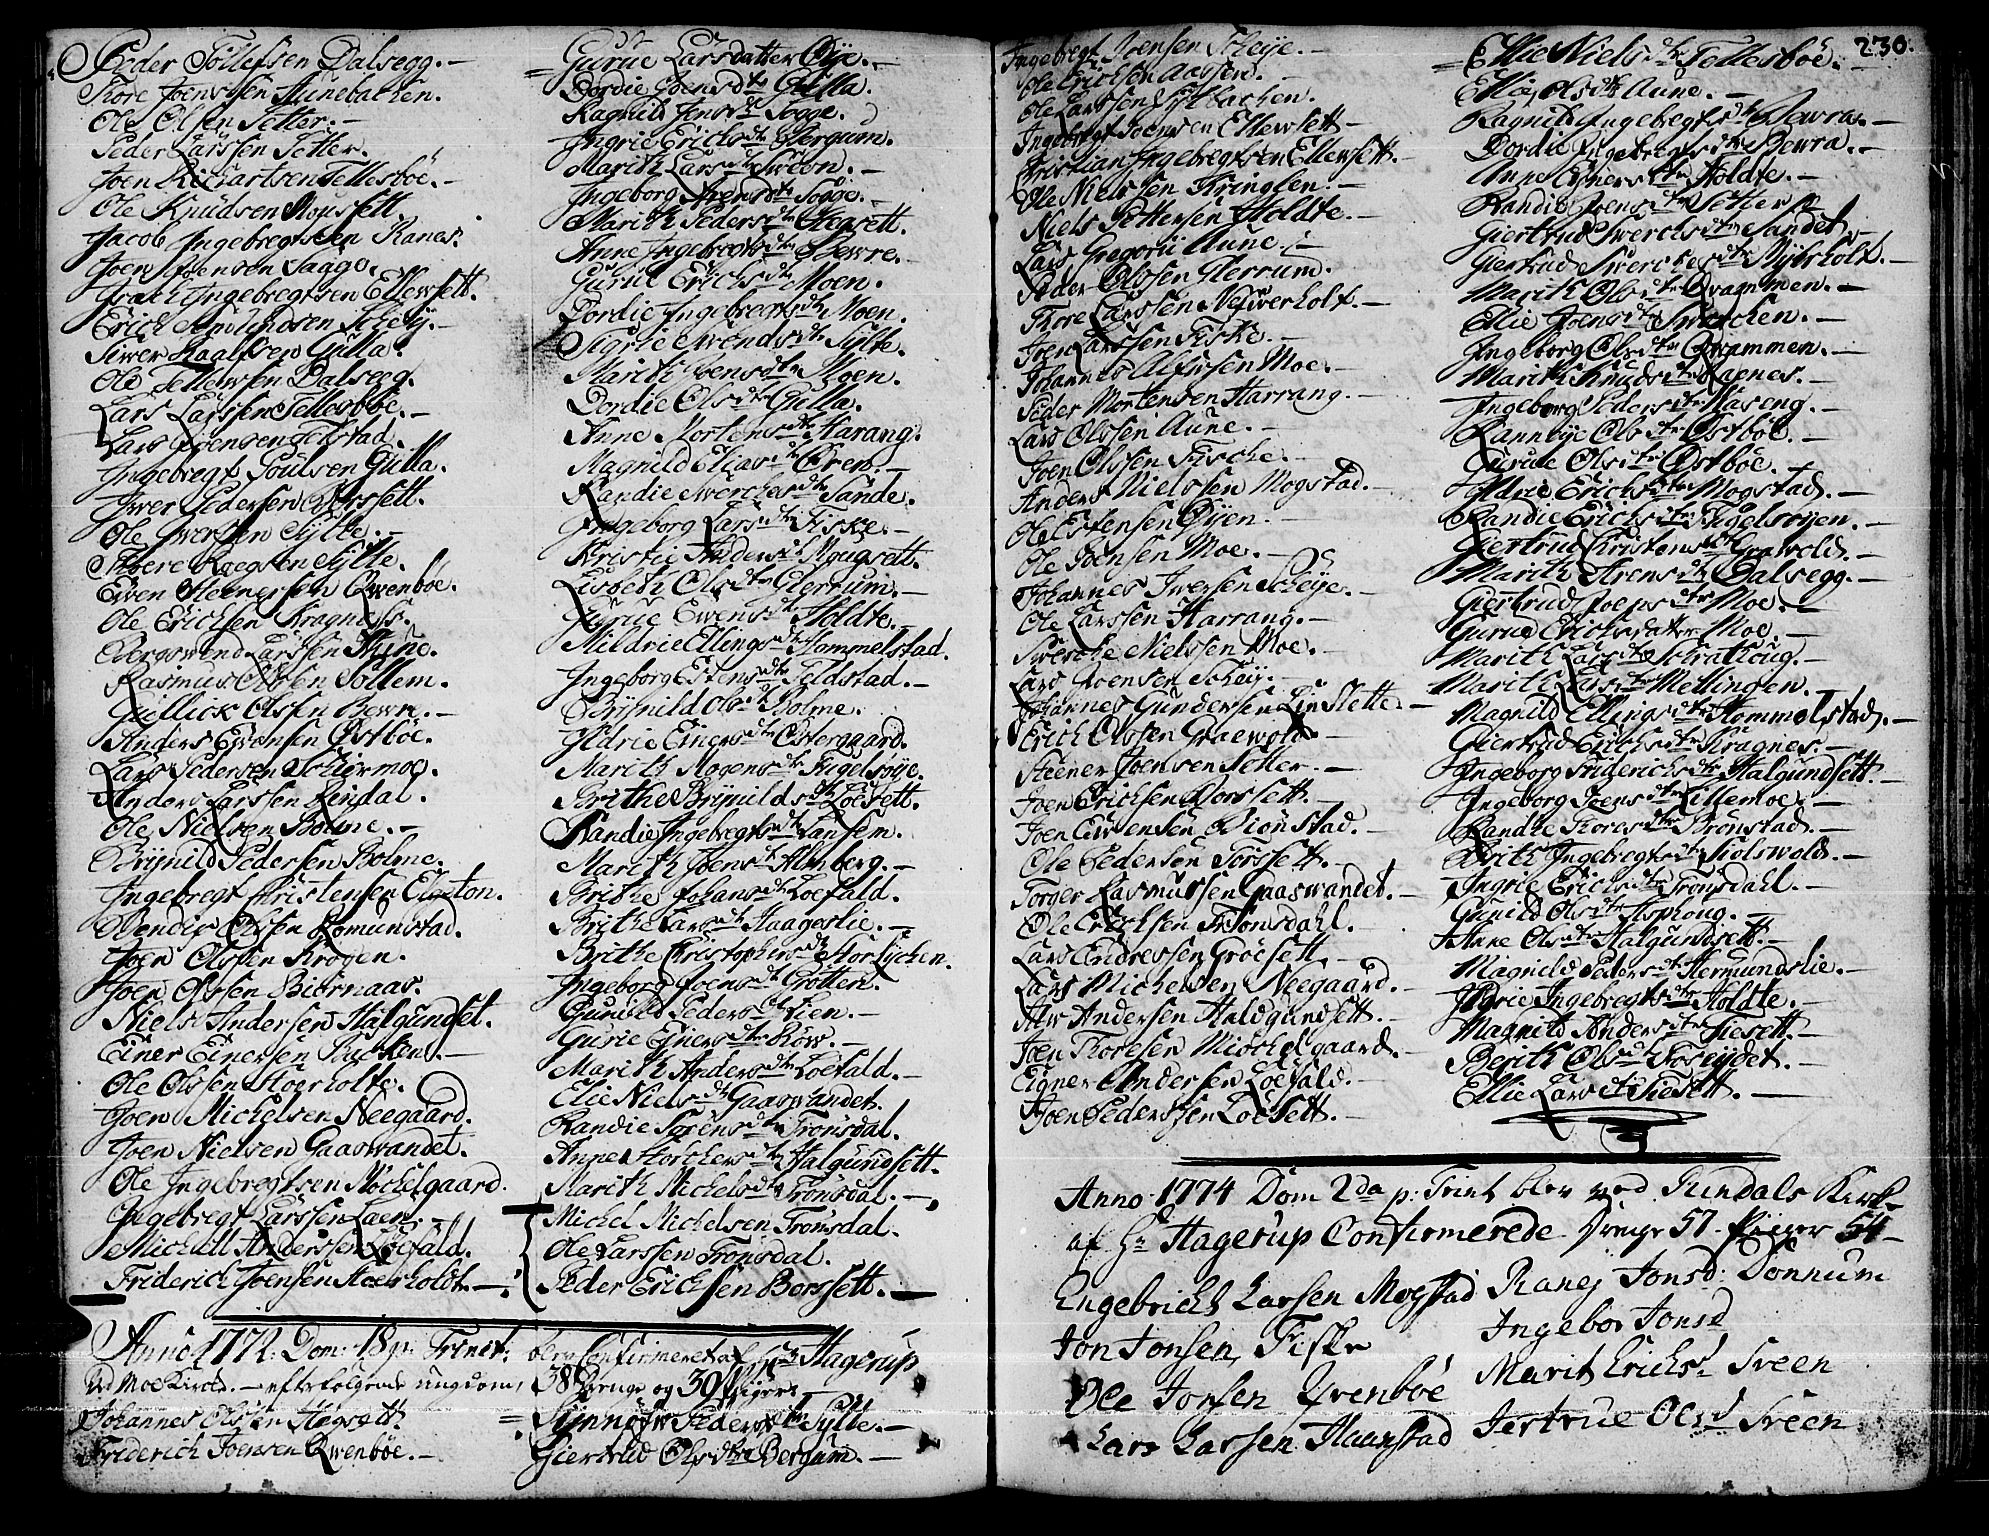 Peder Tollefsen Dalsegg.
Tore Joenssen
Ole Olsen Setter.
Peder Larssen Setter.
Joen Richartsen Tellesböe.
Ole Knudsen
Jacob Ingebregtsen Ranes.
Joen Joensen
Ingebregtsen Ellewsett.
Erich
Siwer Gulla.
Ole Tellewsen Dalsegg.
Lars Larssen Tellesböe.
Lars Joensen Felstad.
Ingebregt Poulsen Gulla.
Iwer Pedersen Dorssett.
Ole Iwersen Sylte.
Sylte.
Ewen Steenersen Qwenböe.
Ole Erichsen Kragness.
Bergswend Larssen
Rasmus Olssen Sollem.
Gullick Olssen Bewre.
Anders Ewensen Östböe.
Lars Pedersen Schiermoe.
Anders Larssen Rindal.
Ole Nielsen Bolme.
Brynild Pedersen Bolme.
Ingebregt Christensen
Olsen Romundstad.
Joen Olssen Krogen.
Joen Olssen Biörnaas.
Niels Andersen Halgundset.
Einer Einersen Backen.
Ole Olssen Stoerholte.
Joen Michelsen Neegaard.
Joen Nielsen Gaaswandet.
Ole Ingebregtsen Möchelgaard.
Ingebregt Larssen Laen.
Michell Anderssen Löefald.
Friderich Joensen Stoerholdt.
Anno 1772. Dom: 18 p. Trinit:
Ved Moe Kirke efterfølgende ungdom,
Johannes Olssen Hegsett
Friderich Joensen Qwenböe.
Gurue Larsdatter Öye.
Dordie Joensdtr Gulla.
Ragnild Jensdtr Sogge.
Ingrie Erichsdtr Glerum.
Marith Larsdtr Sweön.
Ingeborg Arensdtr Sogge.
Marith Pedersdtr Hegsett.
Anne Ingebregtsdtr Bewre.
Gurue Erichsdtr Moen.
Dordie Ingebregtsdtr Moen.
Sigrie Swendsdtr Sylte.
Marith Joensdtr Moen.
Dordie Olsdtr Gulla.
Anne Mortensdtr Harang.
Magnild Eliasdtr Ören.
Randie Swerchesdtr Sande.
Ingeborg Larsdtr Fiske.
Kristie Andersdtr Mougsett.
Lisbeth Olsdtr Glerrum.
Gurue Ewensdtr Holdte.
Mildrie Ellingsdtr Hommelstad.
Ingeborg Estensdtr Feldstad.
Brynild Olsdtr Bolme.
Ildrie Einersdtr Östergaard.
Marith Mogensdtr Fugelsöye.
Brithe Brynildsdtr Löesett.
Randie Ingebregtsdtr Lansem.
Marith Joensdtr Almberg.
Brithe Johansdtr Löefald.
Brithe Larsdtr Haageslie.
Brithe Christophersdtr Storlychen.
Ingeborg Joensdtr Grötten.
Gunild Pedersdtr Lien.
Gurie Einersdtr Röw.
Marith Andersdtr Löefald.
Elie Nielsdtr Gaaswandet.
Randie Sörensdtr Trönsdal.
Anne Storchersdtr Halgundsett.
Marith Michelsdtr Trönsdal.
Michel Michelsen Trönsdal.
Ole Larssen Trönsdal.
Peder Erichsen Borssett.
blev Confirmeret af Hr Hagerup
38 Drenge og 39 Piger.
Synnöw Pedersdtr Sylte.
Giertrud Olsdtr Bergum.
Ingebregt Joensen Scheye.
Ole Erichsen Aassen.
Ole Larssen Syltbachen.
Ingebregt Joensen Ellewsett
Christian Ingebregtsen Ellewsett.
Ole Nielssen Kringlen.
Niels Pettersen Holdte.
Lars Gregorii Aune.
Peder Olssen Glerrum.
Thore Larssen Nyswerholt.
Joen Larssen Fiske.
Johannes Moe.
Peder Mortensen Harrang.
Lars Olssen Aune.
Joen Olssen Fische.
Anders Nielssen Mogstad.
Ole Estensen Öyen.
Ole Joensen Moe.
Johannes Iwersen Scheye.
Ole Larssen Harrang.
Swerche Nielssen Moe.
Lars Joensen Schey.
Johannes Gundersen Linslette
Erich Olssen Graewold.
Steener Joensen Setter.
Joen Erichsen Dorssett.
Joen Ewensen Brönstad.
Ole Pedersen Törssett.
Torger Rasmussen Gaaswandet.
Ole Erichsen Trönsdahl.
Lars Endressen Gröesett.
Lars Michelsen Neegaard.
Andersen Haldgundsett.
Joen Thoresen Miöchelgaard.
Eigner Andersen Löefald.
Joen Pederssen Löesett.
230.
Ellie Nielsdtr Tellesböe.
Ellie Olsdtr Aune.
Ragnild Ingebregtsdtr Bewra.
Dordie Ingebregtsdtr Bewra.
Anne Einersdtr Holdte.
Randie Joensdtr Setter
Giertrud Swerchsdtr Sandet.
Giertrud Swerchesdtr Nyswerholt.
Marith Olsdtr Qwammen.
Ellie Joensdtr Swerchen.
Ingeborg Olsdtr Qwammen.
Marith Knudsdtr Ranes.
Ingeborg Pedersdtr Aaseng.
Ranneye Olsdtr Östböe.
Gurue Olsdtr Östböe.
Ildrie Erichsdtr Mogstad.
Randie Erichsdtr Fugelsöyen.
Giertrud Christensdtr Grawold.
Marith Arensdtr Dalsegg.
Giertrud Joensdtr Moe.
Gurue Erichsdatter Moe.
Marith Larsdtr Schrathoug.
Marith Larsdtr Mellingen.
Magnild Ellingsdtr Hommelstad.
Giertrud Erichsdtr Kragnes.
Ingeborg Friderichsdtr Halgundsett.
Ingeborg Joensdtr Lillemoe.
Randie Thoresdtr Brönstad.
Brith Ingebregtsdtr Siölswold.
Ingrie Erichsdtr Trönsdahl.
Gunild Olsdtr Asphoug.
Anne Olsdtr Halgundsett.
Magnild Pedersdtr Hermundslie.
Ildrie Ingebregtsdtr Holdte.
Magnild Andersdtr Siesett.
Berith Olsdtr Foseydet.
Ellie Larsdtr Siesett.
Anno 1774 Dom 2da p: Trinit blev ved Rindals Kirke
af Hr Hagerup Confirmerede Drenge 57 Piiger 54
Engebricht Larsen Mogstad
Jon Jonsen Fiske
Ole Jonsen Qvenböe
Lars Larsen Haanstad
Ranej Jonsd: Dönnum
Ingebor Jonsd
Marit Erichsd Sveen
Jertrue Olsd Sveen